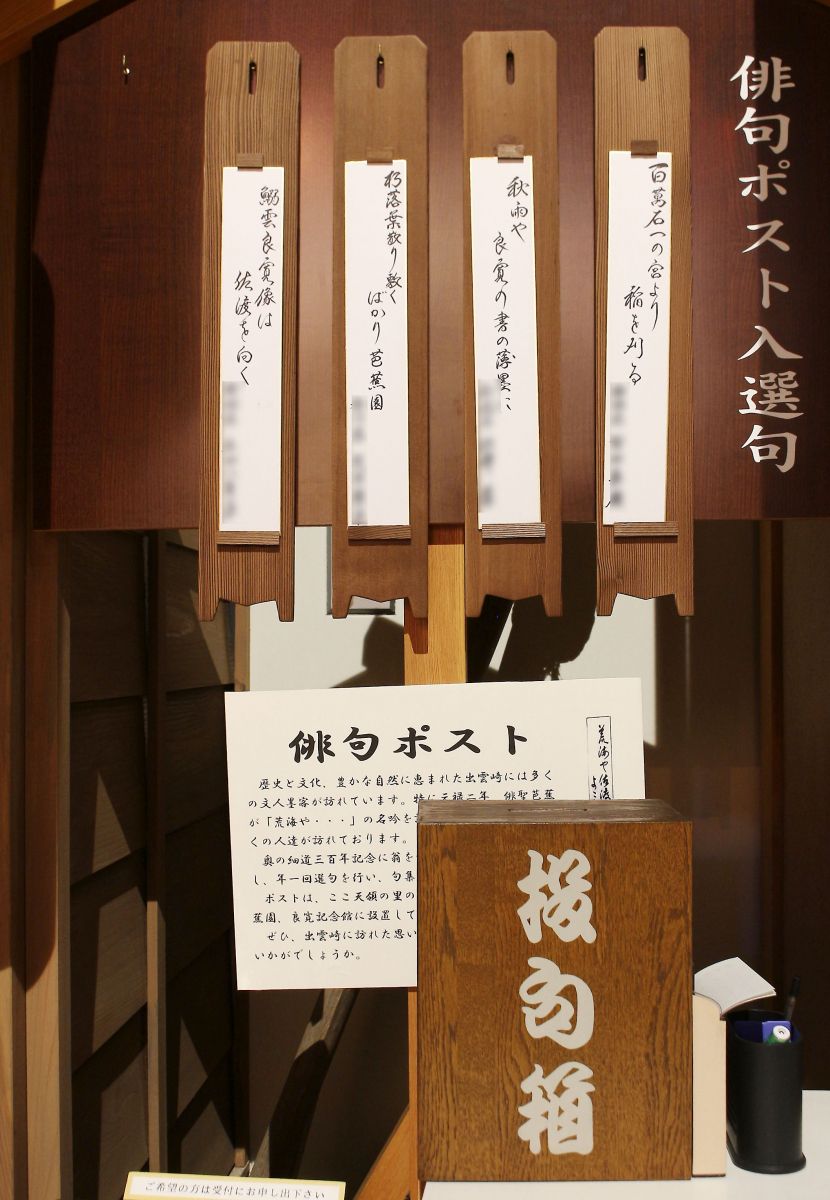 俳句ポスト入選句
百萬石一の宮より
稲を刈る
秋雨や
良寛の書の薄墨に
朽落葉散り敷く
ばかり芭蕉園
鰯雲良寛像は
佐渡を向く
俳句ポスト
荒海や佐渡
よこ
歴史と文化、豊かな自然に恵まれた出雲崎には多く
の文人墨客が訪れています。特に元禄二年、俳聖芭蕉
が「荒海や・・・」の名吟を
くの人達が訪れております。
奥の細道三百年記念に翁を
し、年一回選句を行い、句集
ポストは、ここ天領の里の
蕉園、良寛記念館に設置して
ぜひ、出雲崎に訪れた思い
いかがでしょうか。
投句箱
ご希望の方は受付にお申し出下さい